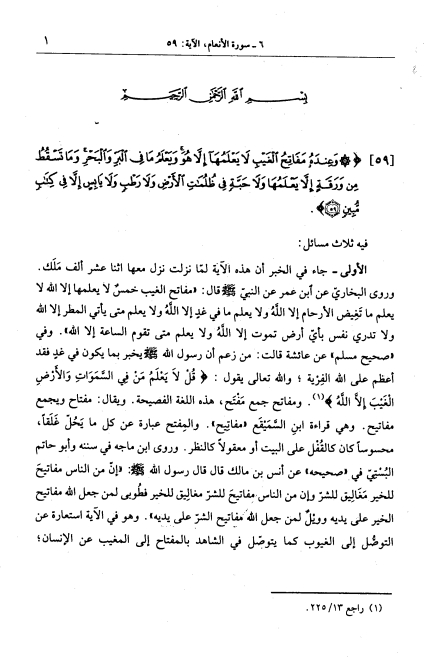 ٦ - سورة الأنعام، الآية: ٥٩ ١
بسم الله الرحمن الرحيم
[٥٩] ﴿۞ وَعِندَهُ مَفَاتِحُ الْغَيْبِ لَا يَعْلَمُهَا إِلَّا هُوَ وَيَعْلَمُ مَا فِي الْبَرِّ وَالْبَحْرِ وَمَا تَسْقُطُ
مِن وَرَقَةٍ إِلَّا يَعْلَمُهَا وَلَا حَبَّةٍ فِي ظُلُمَاتِ الْأَرْضِ وَلَا رَطْبٍ وَلَا يَابِسٍ إِلَّا فِي كِتَابٍ
مُبِينٍ ۝٥٩﴾.
فيه ثلاث مسائل:
الأولى - جاء في الخبر أن هذه الآية لمّا نزلت نزل معها اثنا عشر ألف مَلَك.
وروى البخاري عن ابن عمر عن النبيّ ﷺ قال: «مفاتيح الغيب خمسٌ لا يعلمها إلا الله لا
يعلم ما تَغِيض الأرحام إلا اللَّهُ ولا يعلم ما في غدٍ إلا اللَّهُ ولا يعلم متى يأتي المطر إلا الله
ولا تدري نفس بأي أرض تموت إلا اللَّهُ ولا يعلم متى تقوم الساعة إلا الله». وفي
«صحيح مسلم» عن عائشة قالت: من زعم أن رسول الله ﷺ يخبر بما يكون في غدٍ فقد
أعظم على الله الفِرْية ؛ والله تعالى يقول : ﴿ قُلْ لاَ يَعْلَمُ مَنْ فِي السَّمَوَاتِ وَالأَرْضِ
الْغَيْبَ إِلاَّ اللَّهُ ﴾(١). ومفاتح جمع مَفْتَح، هذه اللغة الفصيحة. ويقال: مفتاح ويجمع
مفاتيح. وهي قراءة ابن السَّمَيْقَع «مفاتيح». والمِفتح عبارة عن كل ما يَحُلّ غَلَقاً،
محسوساً كان كالقُفْل على البيت أو معقولاً كالنظر. وروى ابن ماجه في سننه وأبو حاتم
البُسْتِيّ في «صحيحه» عن أنس بن مالك قال قال رسول الله ﷺ: «إنّ من الناس مفاتيحَ
للخير مَغَاليق للشرّ وإن من الناس مفاتيحَ للشرّ مغاليق للخير فطُوبى لمن جعل الله مفاتيح
الخير على يديه وويْلٌ لمن جعل الله مفاتيح الشرّ على يديه». وهو في الآية استعارة عن
التوصُّل إلى الغيوب كما يتوصّل في الشاهد بالمفتاح إلى المغيب عن الإنسان؛
(١) راجع ٢٢٥/١٣.